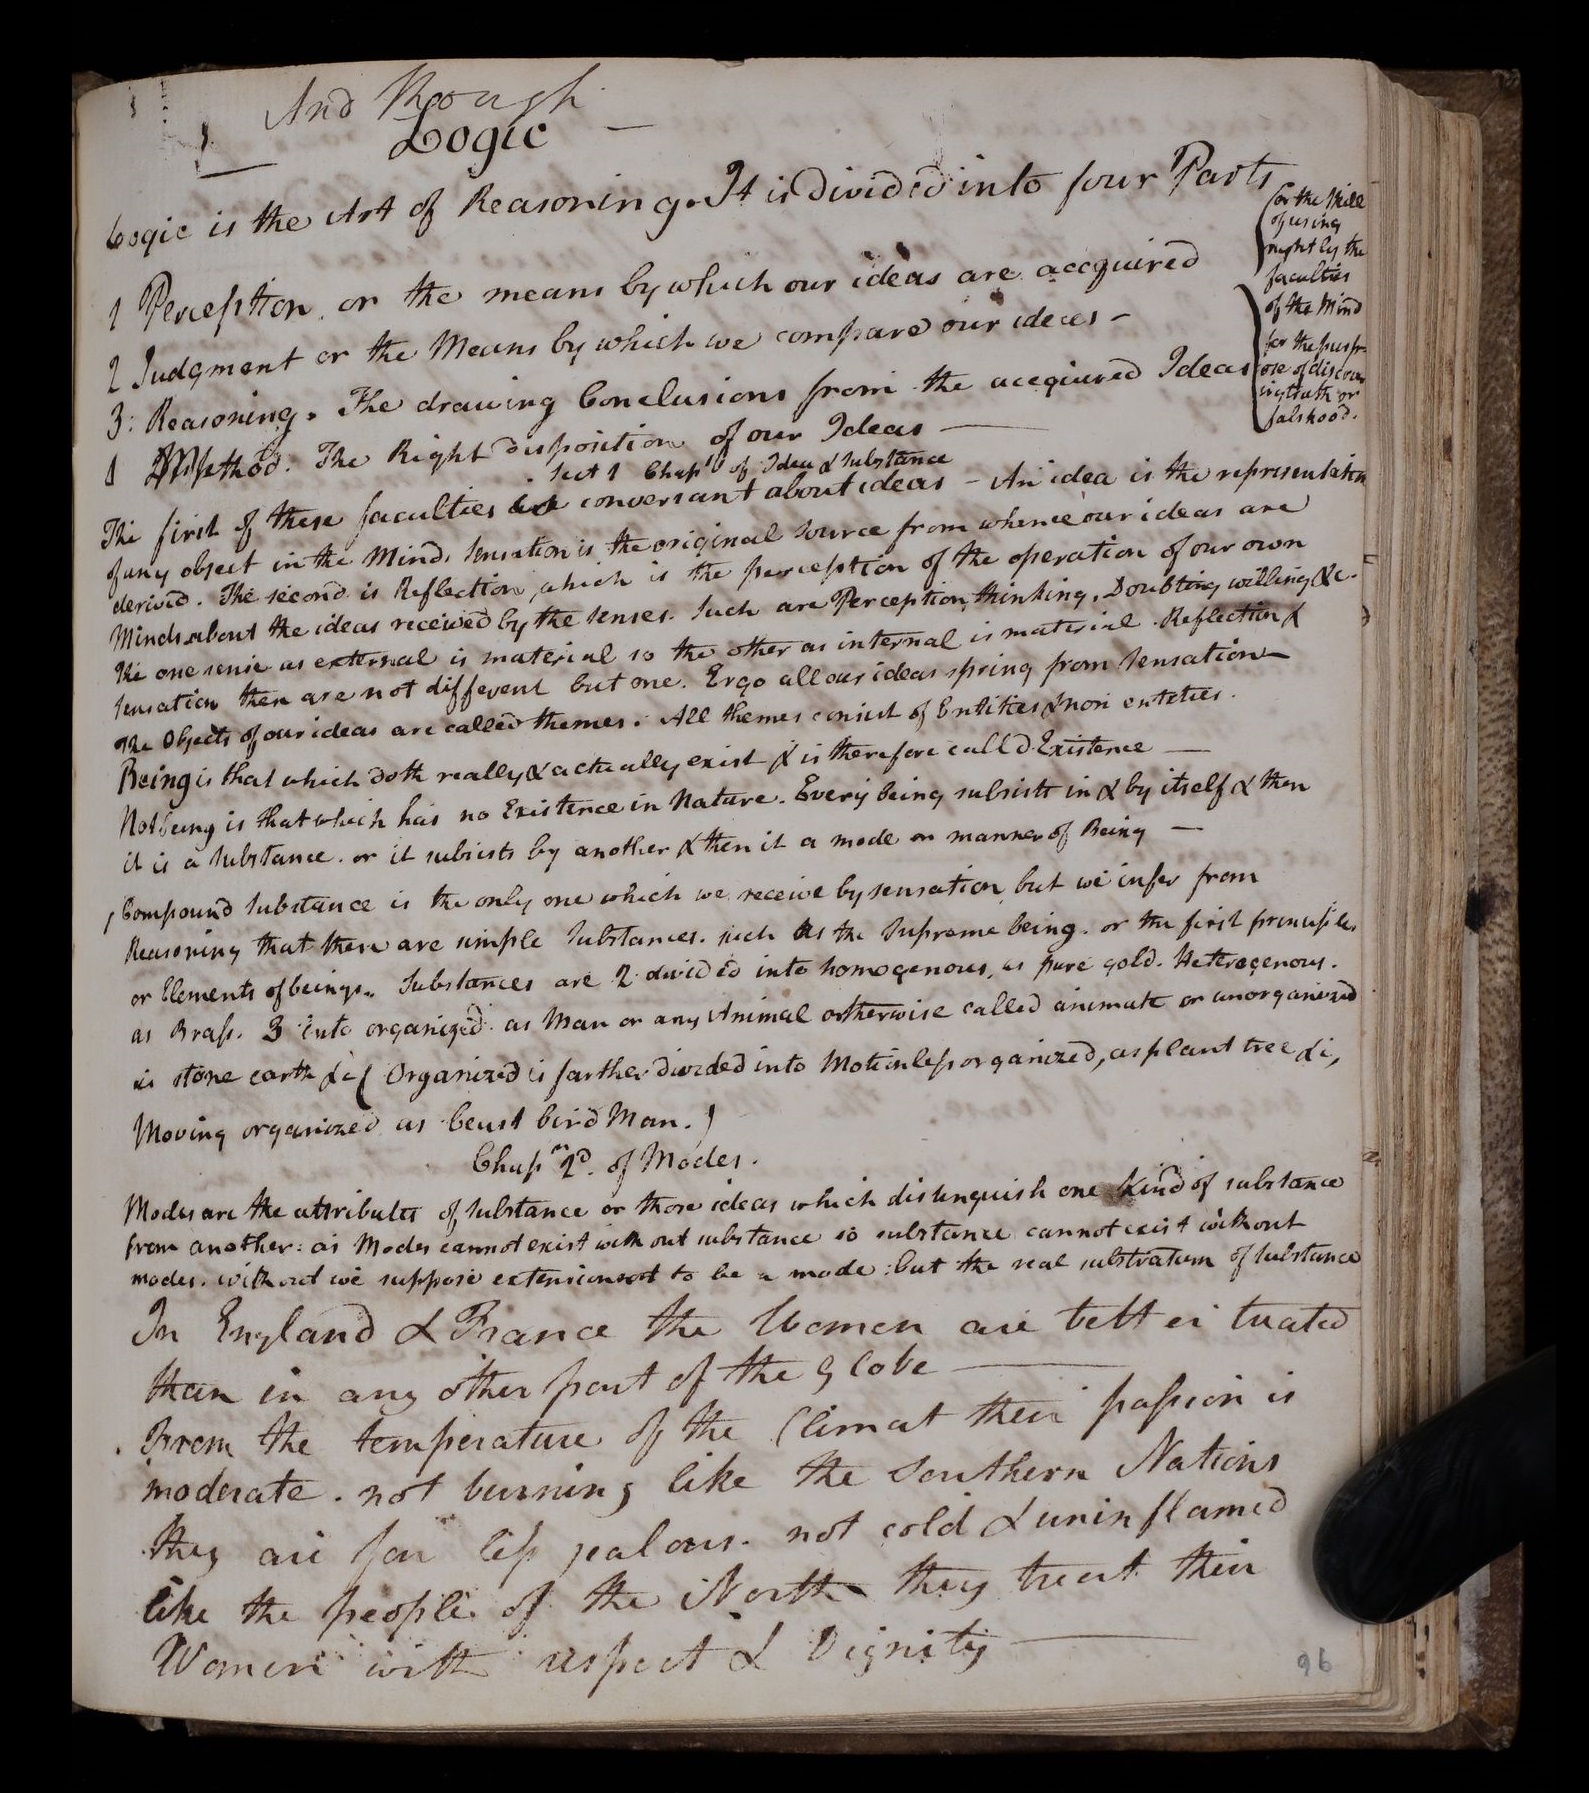 And Rough
Logic —
Logic is the Art of Reasoning. It is divided into four Parts
(or the skill
of using
right by the
faculties
of the Mind
for the purp-
ose of discover
ing truth or
falshood.
1 Perception. or the means by which our ideas are accquired
2 Judgment or the Means by which we compare our ideas –
3: Reasoning. The drawing Conclusions from the accquired Ideas
Method. The Right disposition of our Ideas —
Sect 1 Chapr of Idea & Substance
The first of these faculties is conversant about ideas – An idea is the representation
of any object in the Mind. Sensation is the original source from whence our ideas are
derived. The second is Reflection, which is the perception of the operation of our own
Minds about the ideas received by the senses. Such are Perception, thinking, Doubting, willing &c.
The one sense as external is material so the other as internal is material. Reflection &
Sensation then are not different but one. Ergo all our ideas spring from Sensation
The Objects of our ideas are called themes. All themes consist of Entities & non enteties.
Being is that which doth really & actually exist & is therefore calld Existence —
Not being is that which has no Existence in Nature. Every being subsists in & by itself & then
it is a Substance. or it subsists by another & then it a mode or manner of Being —
Compound Substance is the only one which we receive by sensation, but we infer from
Reasoning that there are simple Substances. such as the Supreme being. or the first principles
or Elements of beings. Substances are 2 divided into homogenous, as pure gold. Heterogenous.
as Brass. 3 into organized as Man or any Animal otherwise called animate or unorganized
as stone earth &c ( Organized is farther divided into Motionless organized, as plant tree &c,
Moving organized as beast bird Man. )
Chapr 2d. of Modes.
Modes are the attributes of Substance or those ideas which distinguish one kind of substance
from another: as Modes cannot exist without substance so substance cannot exist without
modes. without we suppose extension not to be a mode: but the real substratum of Substance
In England & France the Women are better treated
than in any other part of the Globe —
From the temperature of the Climat their passion is
moderate. not burning like the Southern Nations
they are far less jealous. not cold & uninflamed
like the people of the North they treat their
Women with respect & Dignity —
96